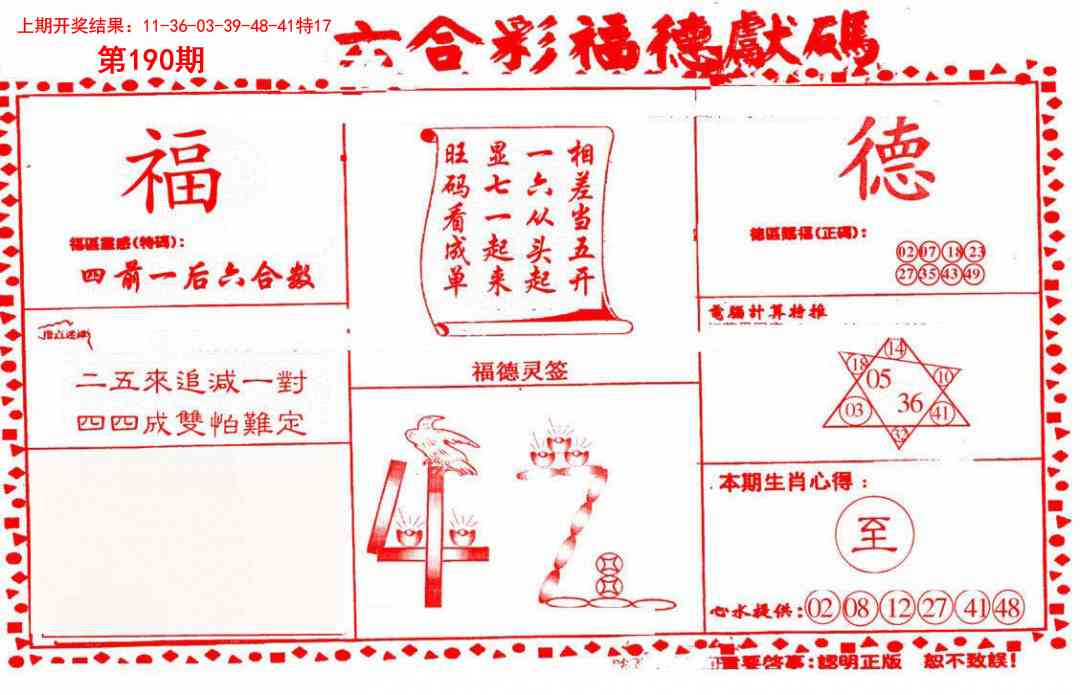 上期开奖结果：11-36-03-39-48-41特17
第190期
六合彩福德獻碼
福
福區靈感(特碼)：
四前一后六合数
二五來追減一對
四四成雙怕難定
相差当五开
一六从头起
显七一起来
旺码看成单
福德灵签
42
德
德區賜福(正碼)：
02 07 18 23
27 35 43 49
電腦計算特推
14
18 10
05
36
03 41
32
本期生肖心得：
至
心水提供：02 08 12 27 41 48
重要啓事：認明正版 恕不致誤！